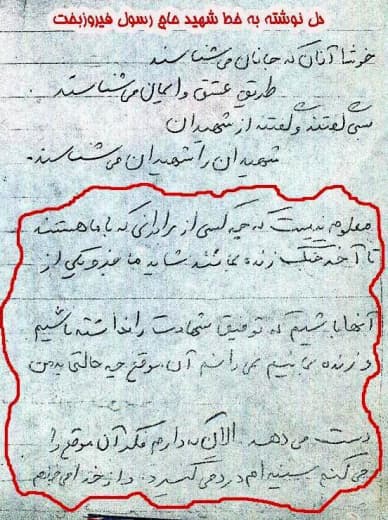 دل نوشته به خط شهید حاج رسول فیروزبخت
خوشا آنان که جانان می‌شناسند
طریق عشق و ایمان می‌شناسند
بسی گفتند و گفتند از شهیدان
شهیدان را شهیدان می‌شناسند.
معلوم نیست که چه کسی از برادرانی که با ما هستند
تا آخر جنگ زنده بمانند شاید ما هم یکی از
آنها باشیم که توفیق شهادت را نداشته باشیم
و زنده بمانیم نمی‌دانم آن موقع چه حالتی به من
دست می‌دهد. الان که دارم فکر آن موقع را
می‌کنم سینه‌ام درد می‌گیرد. و از خدا می‌خواهم